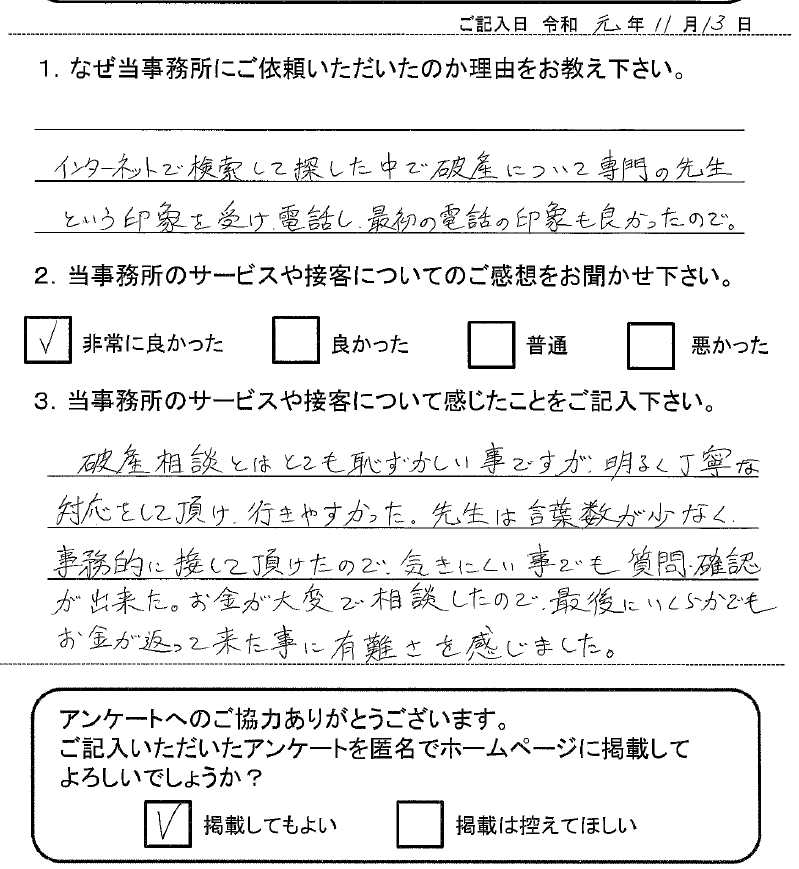 ご記入日 令和 元年 11月13日
1. なぜ当事務所にご依頼いただいたのか理由をお教え下さい。
インターネットで検索して探した中で破産について専門の先生
という印象を受け、電話し、最初の電話の印象も良かったので。
2. 当事務所のサービスや接客についてのご感想をお聞かせ下さい。
✓ 非常に良かった 良かった 普通 悪かった
3. 当事務所のサービスや接客について感じたことをご記入下さい。
破産相談とはとても恥ずかしい事ですが、明るく丁寧な
対応をして頂け、行きやすかった。先生は言葉数が少なく、
事務的に接して頂けたので、気きにくい事でも質問、確認
が出来た。お金が大変で相談したので、最後にいくらかでも
お金が返って来た事に有難さを感じました。
アンケートへのご協力ありがとうございます。
ご記入いただいたアンケートを匿名でホームページに掲載して
よろしいでしょうか？
✓ 掲載してもよい 掲載は控えてほしい